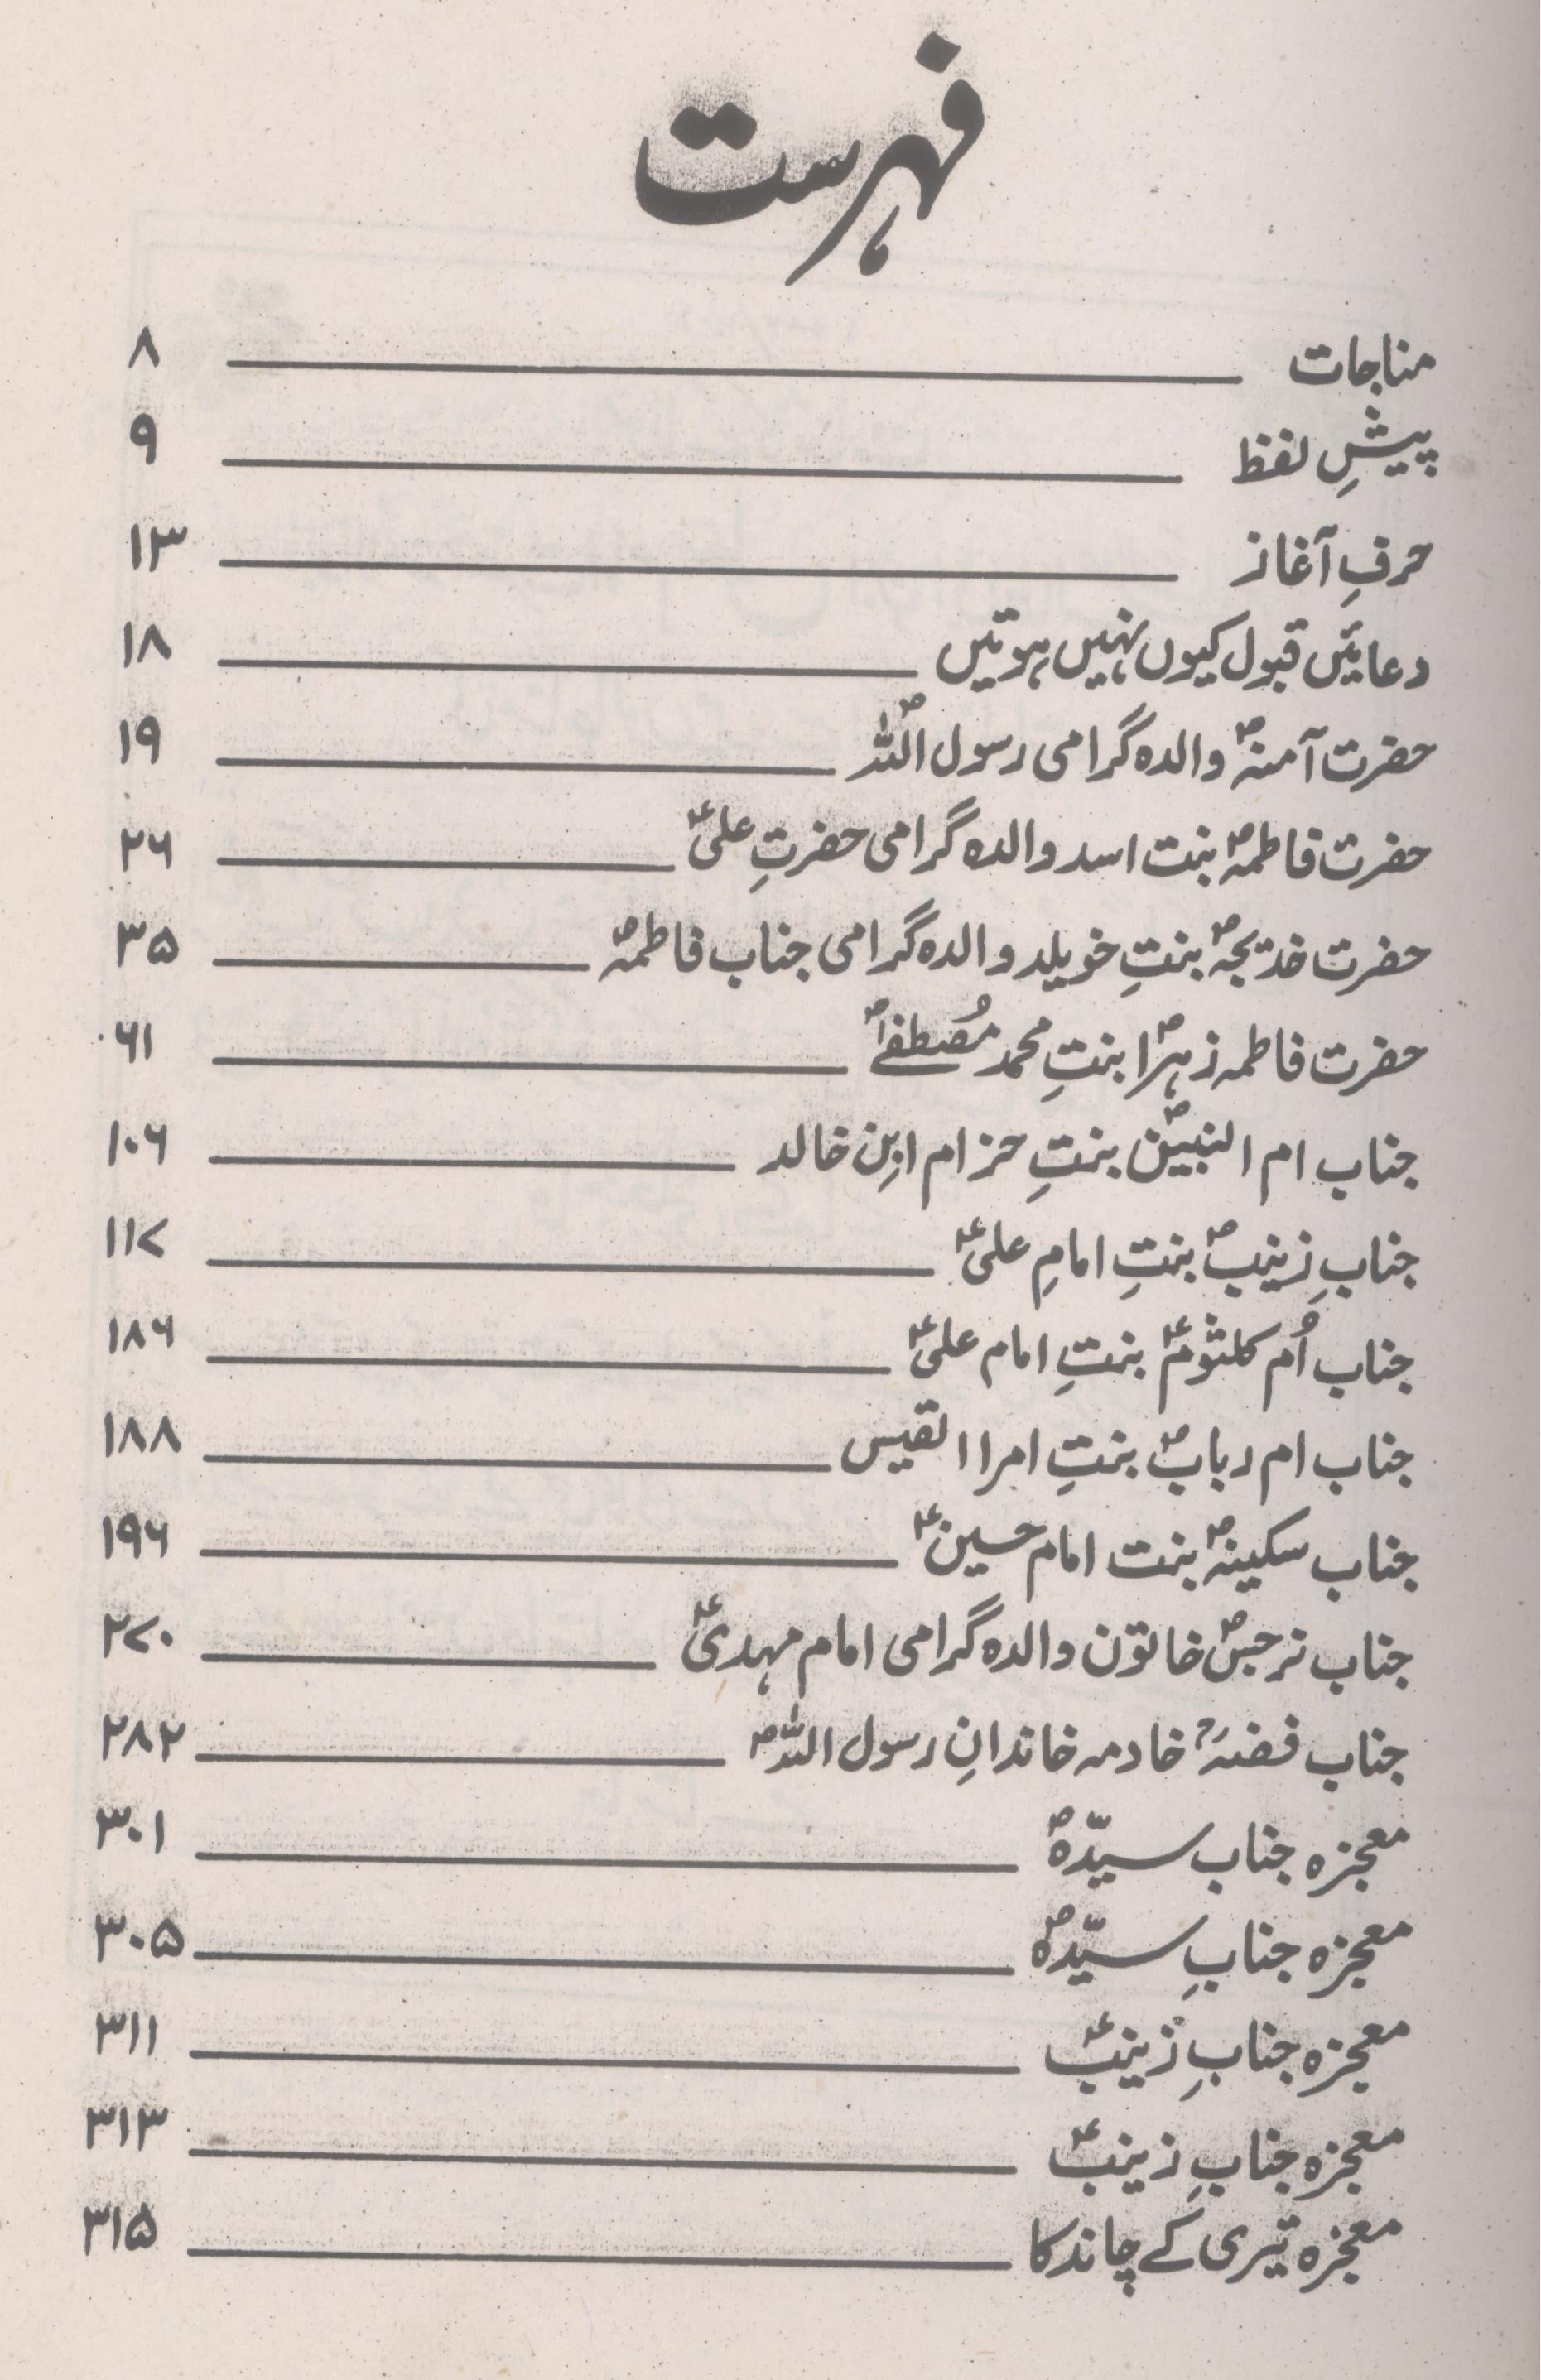 فہرست
مناجات ۸
پیشِ لفظ ۹
حرفِ آغاز ۱۳
دعائیں قبول کیوں نہیں ہوتیں ۱۸
حضرت آمنہؐ والدہ گرامی رسول اللہؐ ۱۹
حضرت فاطمہؐ بنت اسد والدہ گرامی حضرتِ علیؑ ۲۶
حضرت خدیجہؐ بنتِ خویلد والدہ گرامی جناب فاطمہؐ ۳۵
حضرت فاطمہ زہراؐ بنتِ محمد مُصطفےٰؐ ۶۱
جناب ام النبیینؐ بنتِ حزام ابنِ خالد ۱۰۶
جنابِ زینبؐ بنتِ امامِ علیؑ ۱۱۷
جناب اُم کلثومؑ بنتِ امام علیؑ ۱۸۶
جناب ام ربابؐ بنتِ امراالقیس ۱۸۸
جناب سکینہؐ بنت امام حسینؑ ۱۹۶
جناب نرجسؐ خاتون والدہ گرامی امام مہدیؑ ۲۷۰
جناب فضہؓ خادمہ خاندانِ رسول اللہؐ ۲۸۲
معجزہ جناب سیّدہؐ ۳۰۱
معجزہ جنابِ سیّدہؐ ۳۰۵
معجزہ جنابِ زینبؑ ۳۱۱
معجزہ جنابِ زینبؑ ۳۱۳
معجزہ تیری کے چاند کا ۳۱۵